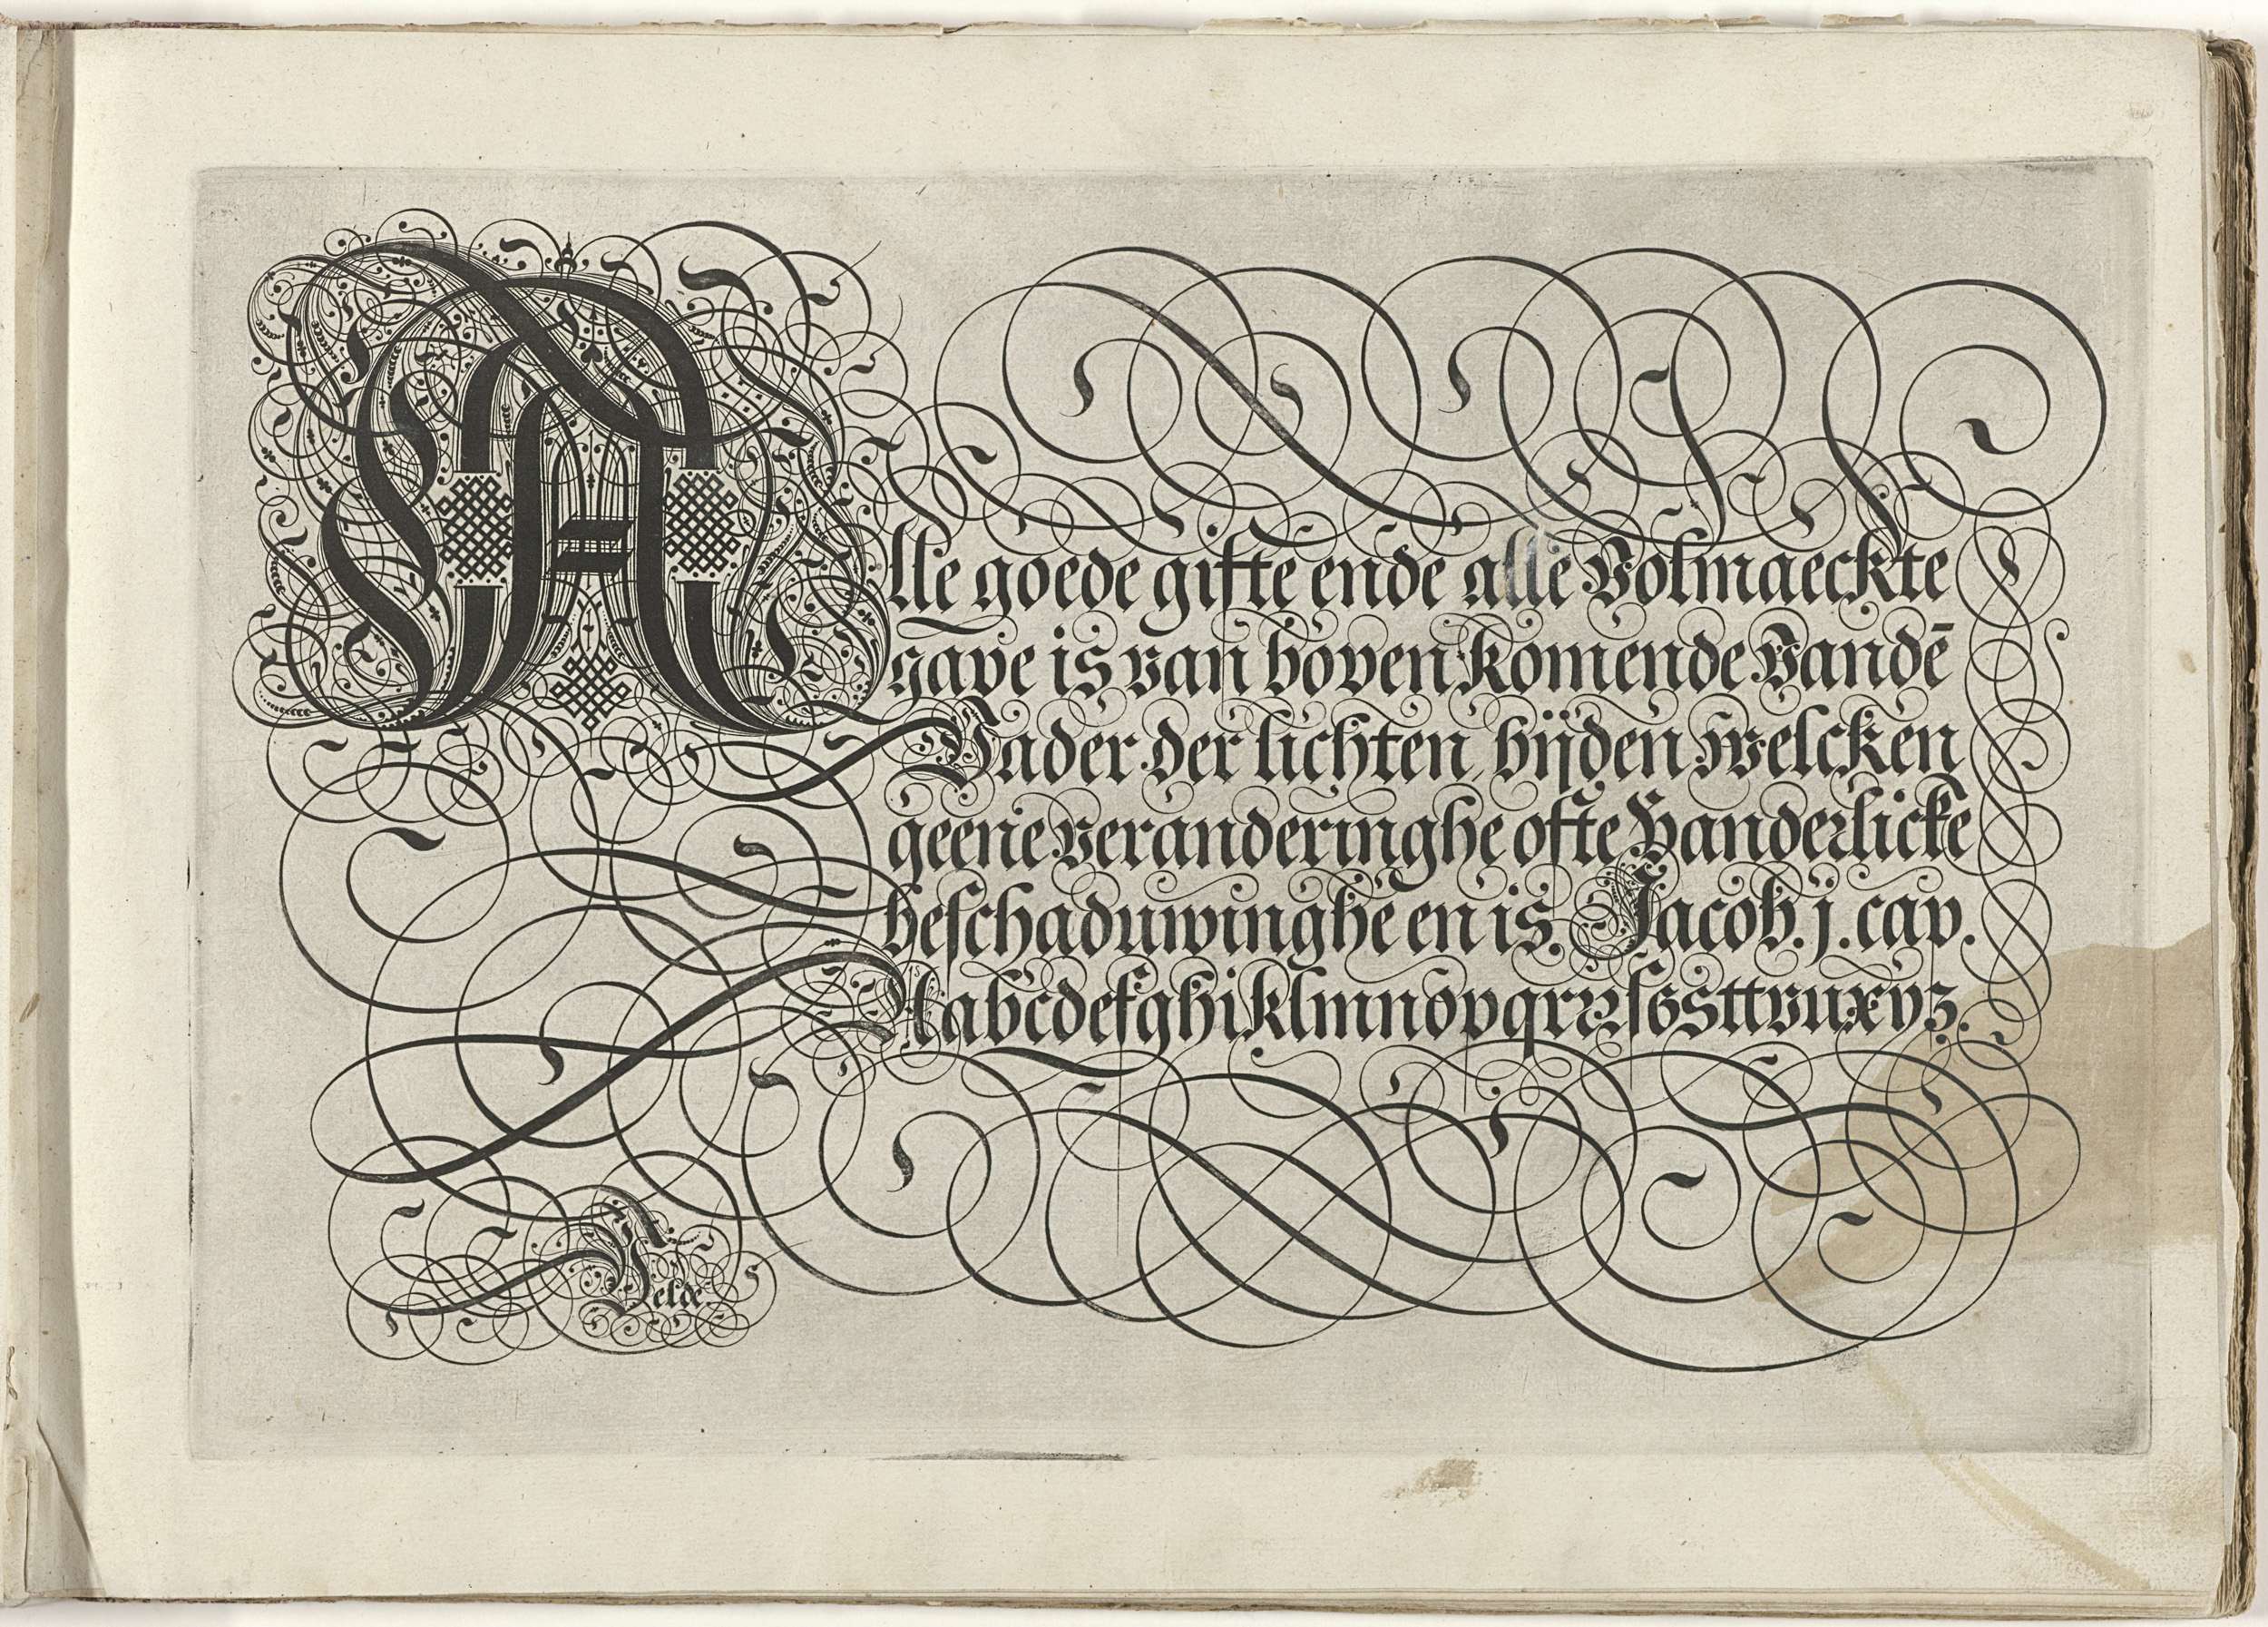 Alle goede gifte ende alle Volmaeckte
gave is van boven komende Vandē
Vader der lichten, bijden welcken
geene veranderinghe ofte Vanderlicke
beschaduwinghe en is. Jacob. j. cap.
Aabcdefghiklmnopqrꝛsſsttvuxyz.
Velde